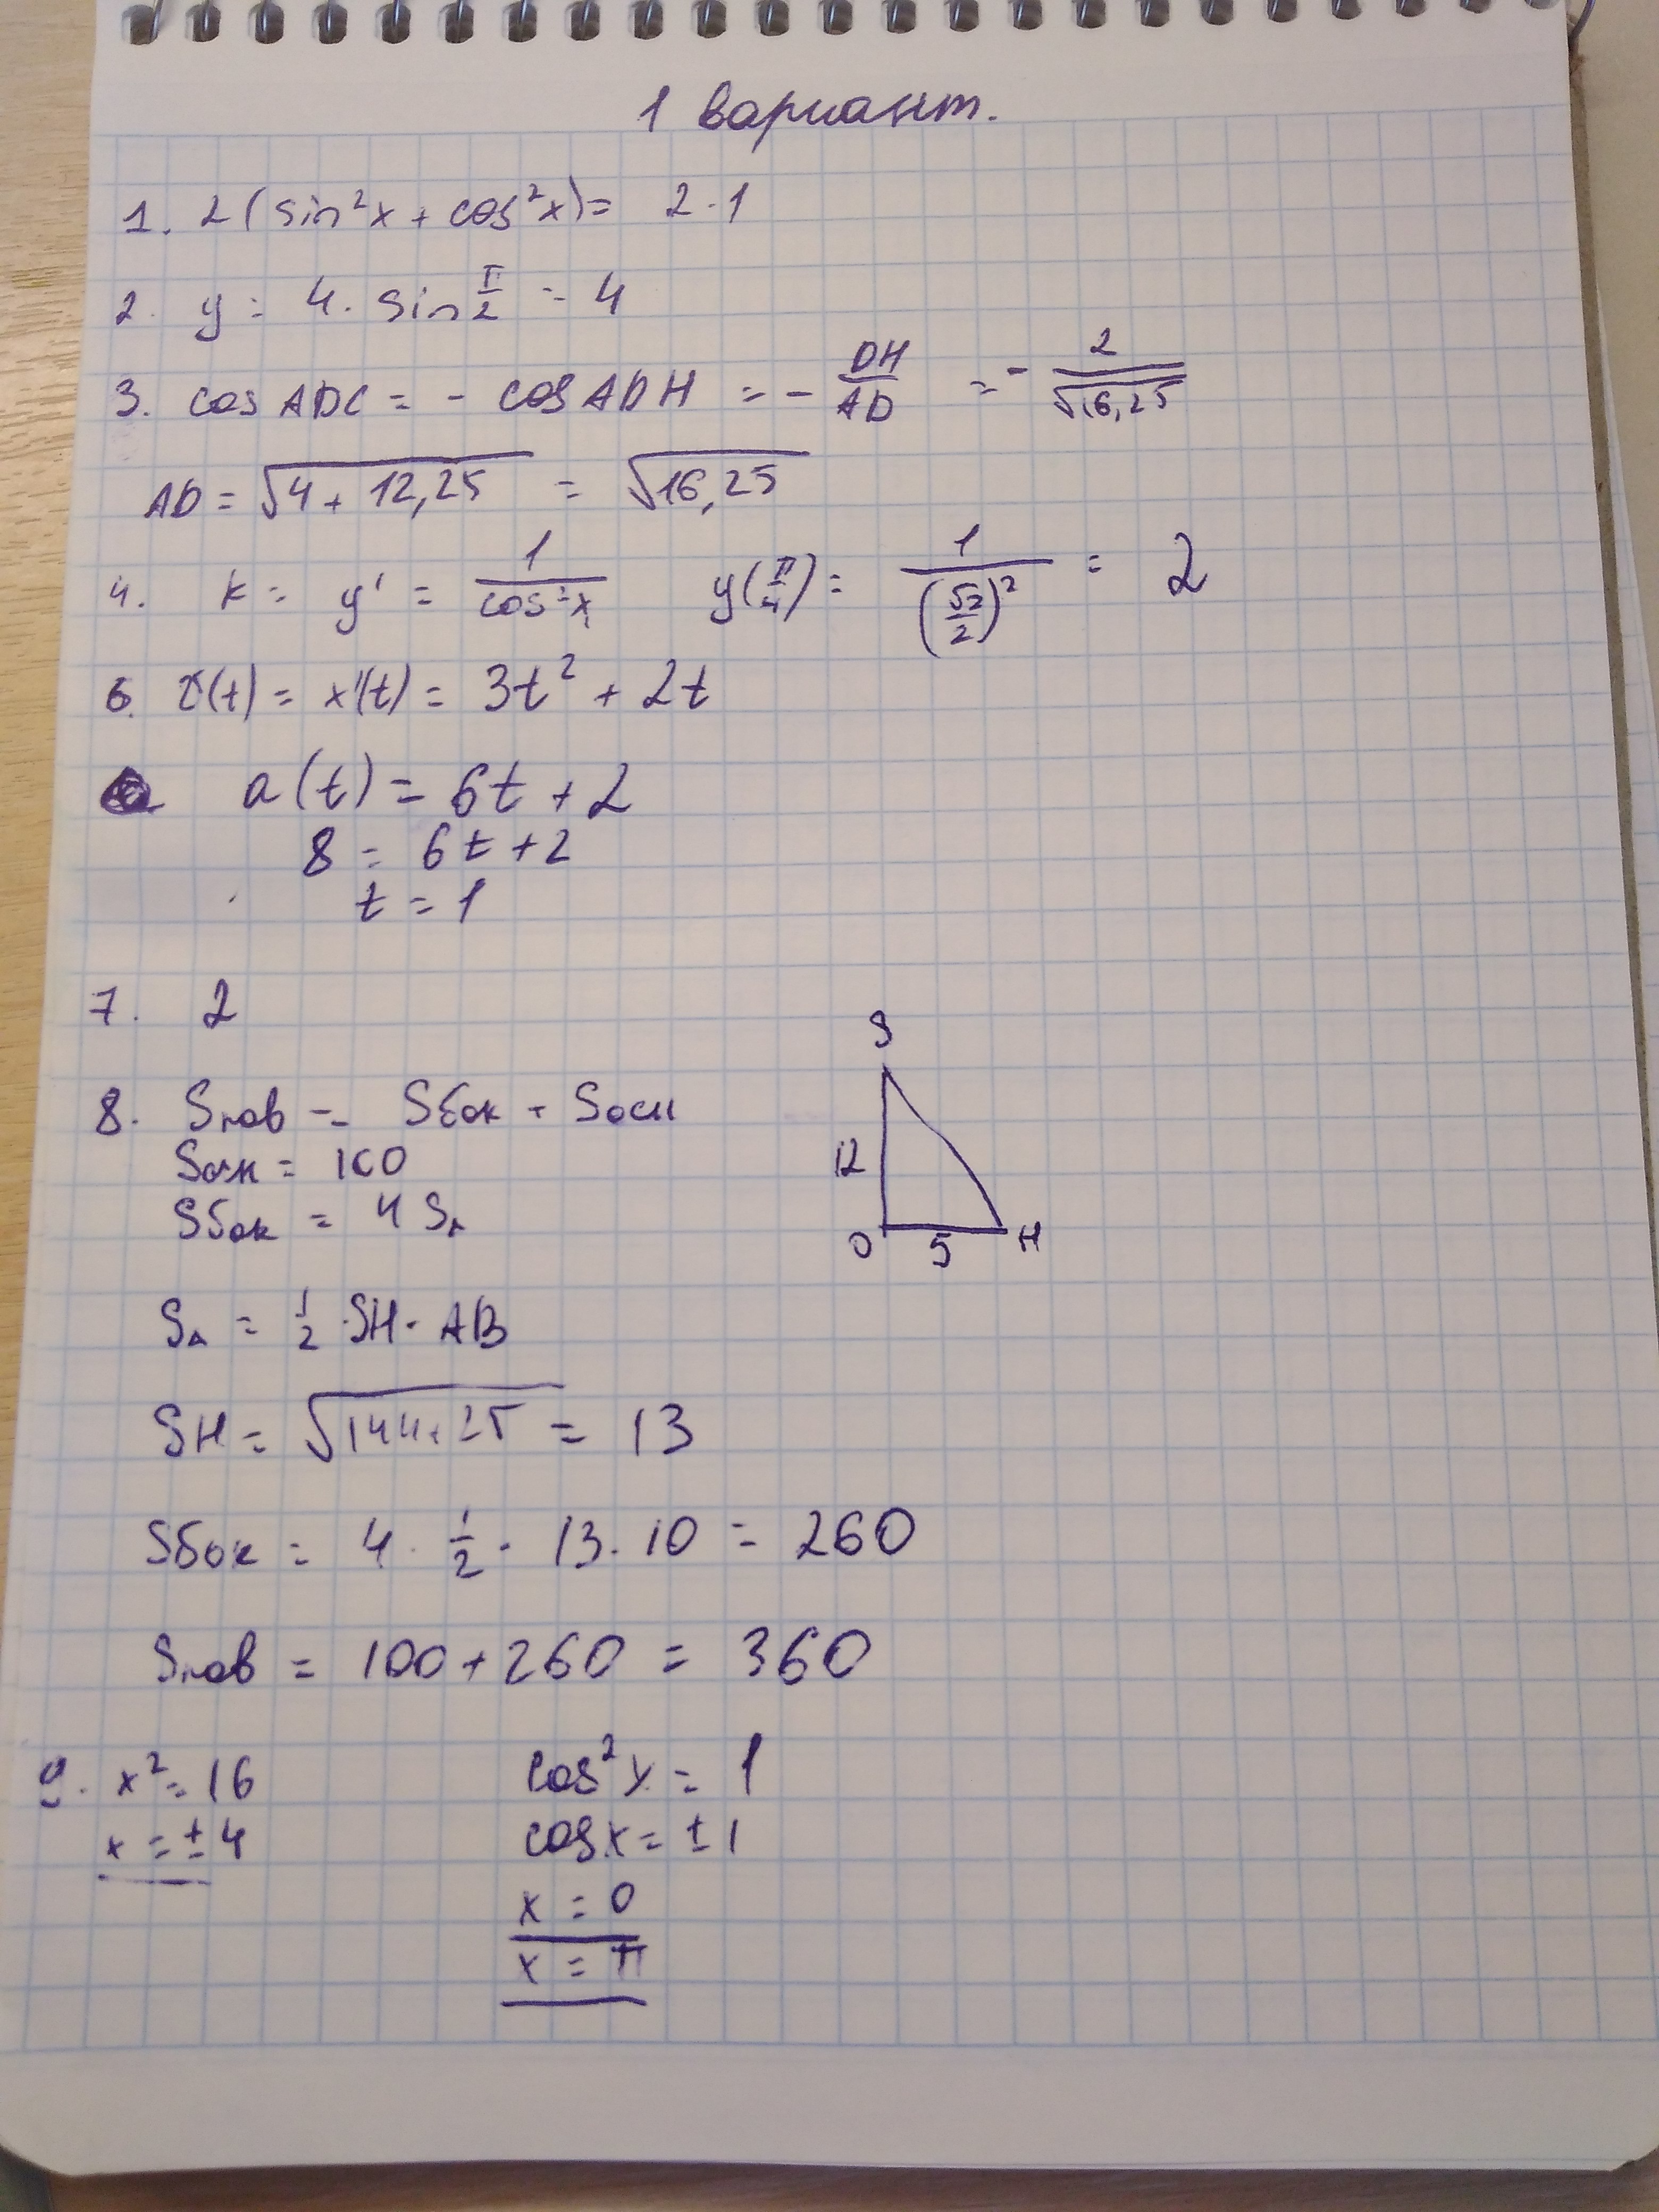 1 вариант.
1. 2(sin²x + cos²x) = 2·1
2. y = 4·sin π/2 = 4
3. cos ADC = - cos ADH = - DH/AD = - 2/√16,25
AD = √4 + 12,25 = √16,25
4. k = y' = 1/cos²x y(π/4) = 1/(√2/2)² = 2
6. v(t) = x'(t) = 3t² + 2t
a(t) = 6t + 2
8 = 6t + 2
t = 1
7. 2
8. Sпов = Sбок + Sосн
Sосн = 100
Sбок = 4 S△
S△ = 1/2 · SH · AB
SH = √144+25 = 13
Sбок = 4 · 1/2 · 13 · 10 = 260
Sпов = 100 + 260 = 360
S
12
O 5 H
9. x² = 16
x = ± 4
cos²x = 1
cos x = ± 1
x = 0
x = π